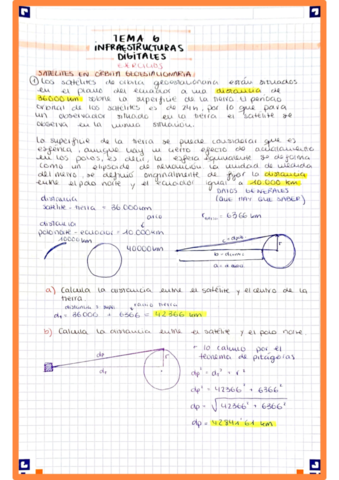 TEMA 6
INFRAESTRUCTURAS
DIGITALES
EJERCICIOS
SATÉLITES EN ÓRBITA GEOESTACIONARIA:
① Los satélites de órbita geoestacionaria están situados
en el plano del ecuador a una distancia de
36000 km sobre la superficie de la tierra. El periodo
orbital de los satélites es de 24h, por lo que para
un observador situado en la tierra el satélite se
observa en la misma situación.
La superficie de la tierra se puede considerar que es
esférica, aunque hay un cierto efecto de achatamiento
en los polos, es decir, la esfera equivalente se deforma
como un elipsoide de revolución. La unidad de medida
del metro, se definió originalmente de fijar la distancia
entre el polo norte y el ecuador igual a 10.000 km
DATOS GENERALES
(QUE HAY QUE SABER)
distancia
satélite - tierra = 36000 km
arco
distancia
polo norte - ecuador = 10.000 km
= 6366 km
10000 km
40000 km
r
a) Calcula la distancia entre el satélite y el centro de la
tierra
distancia = radio tierra
d₁ = 36000 + 6366 = 42366 km
b) Calcula la distancia entre el satélite y el polo norte.
dp
r
d₁
* lo calculo por el
teorema de pitágoras
dp² = d₁² + r²
dp² = 42366² + 6366²
dp = √42366² + 6366²
dp = 42841'61 km